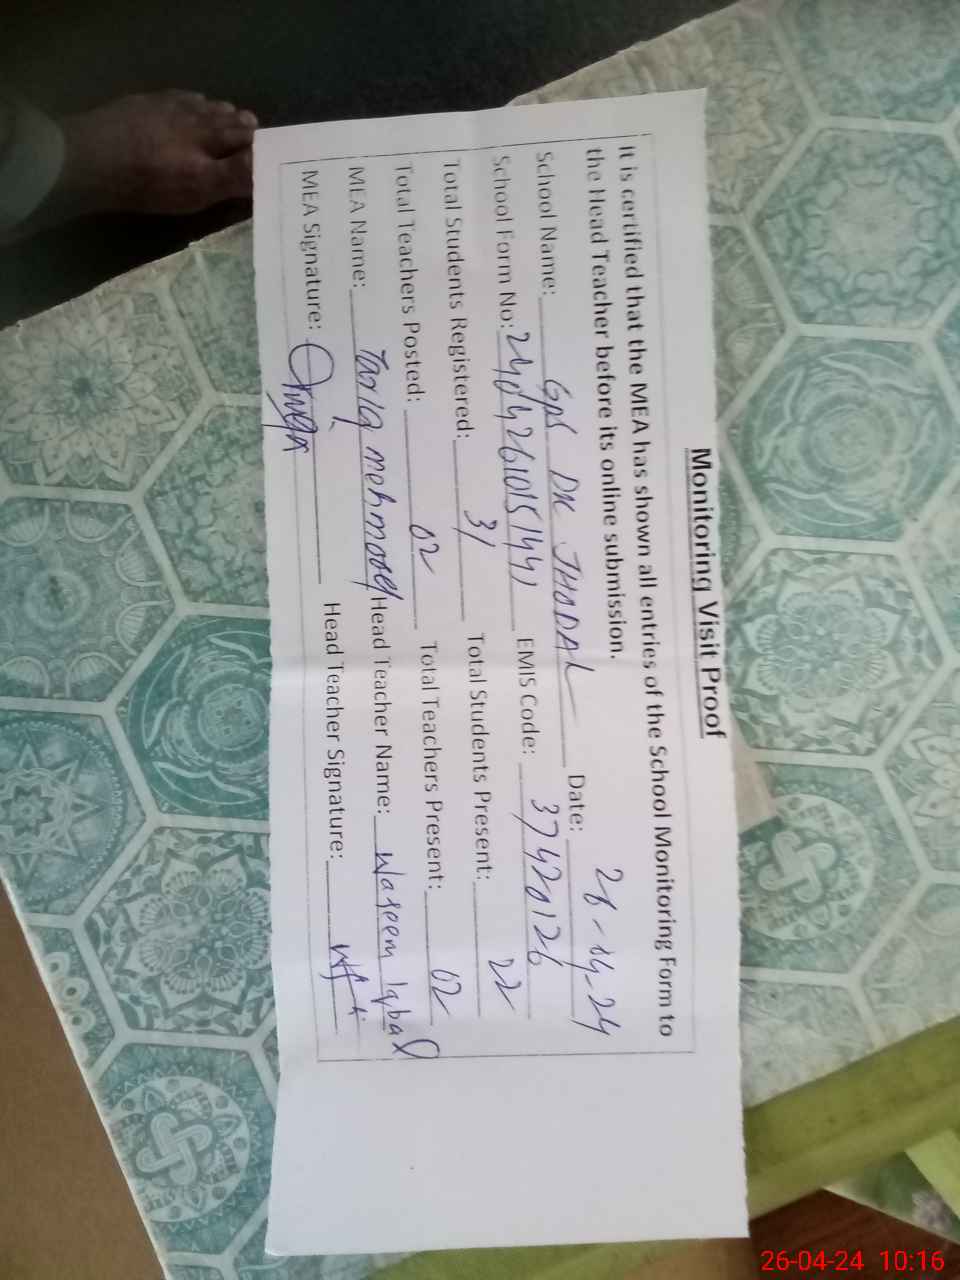 Monitoring Visit Proof
It is certified that the MEA has shown all entries of the School Monitoring Form to
the Head Teacher before its online submission.
School Name: GPS DK JHODAL Date: 26-04-24
School Form No: EMIS Code: 37420126
Total Students Registered: 31 Total Students Present: 22
Total Teachers Posted: 02 Total Teachers Present: 02
MEA Name: Tariq mehmood Head Teacher Name: Waseem Iqbal
MEA Signature: Head Teacher Signature:
26-04-24 10:16